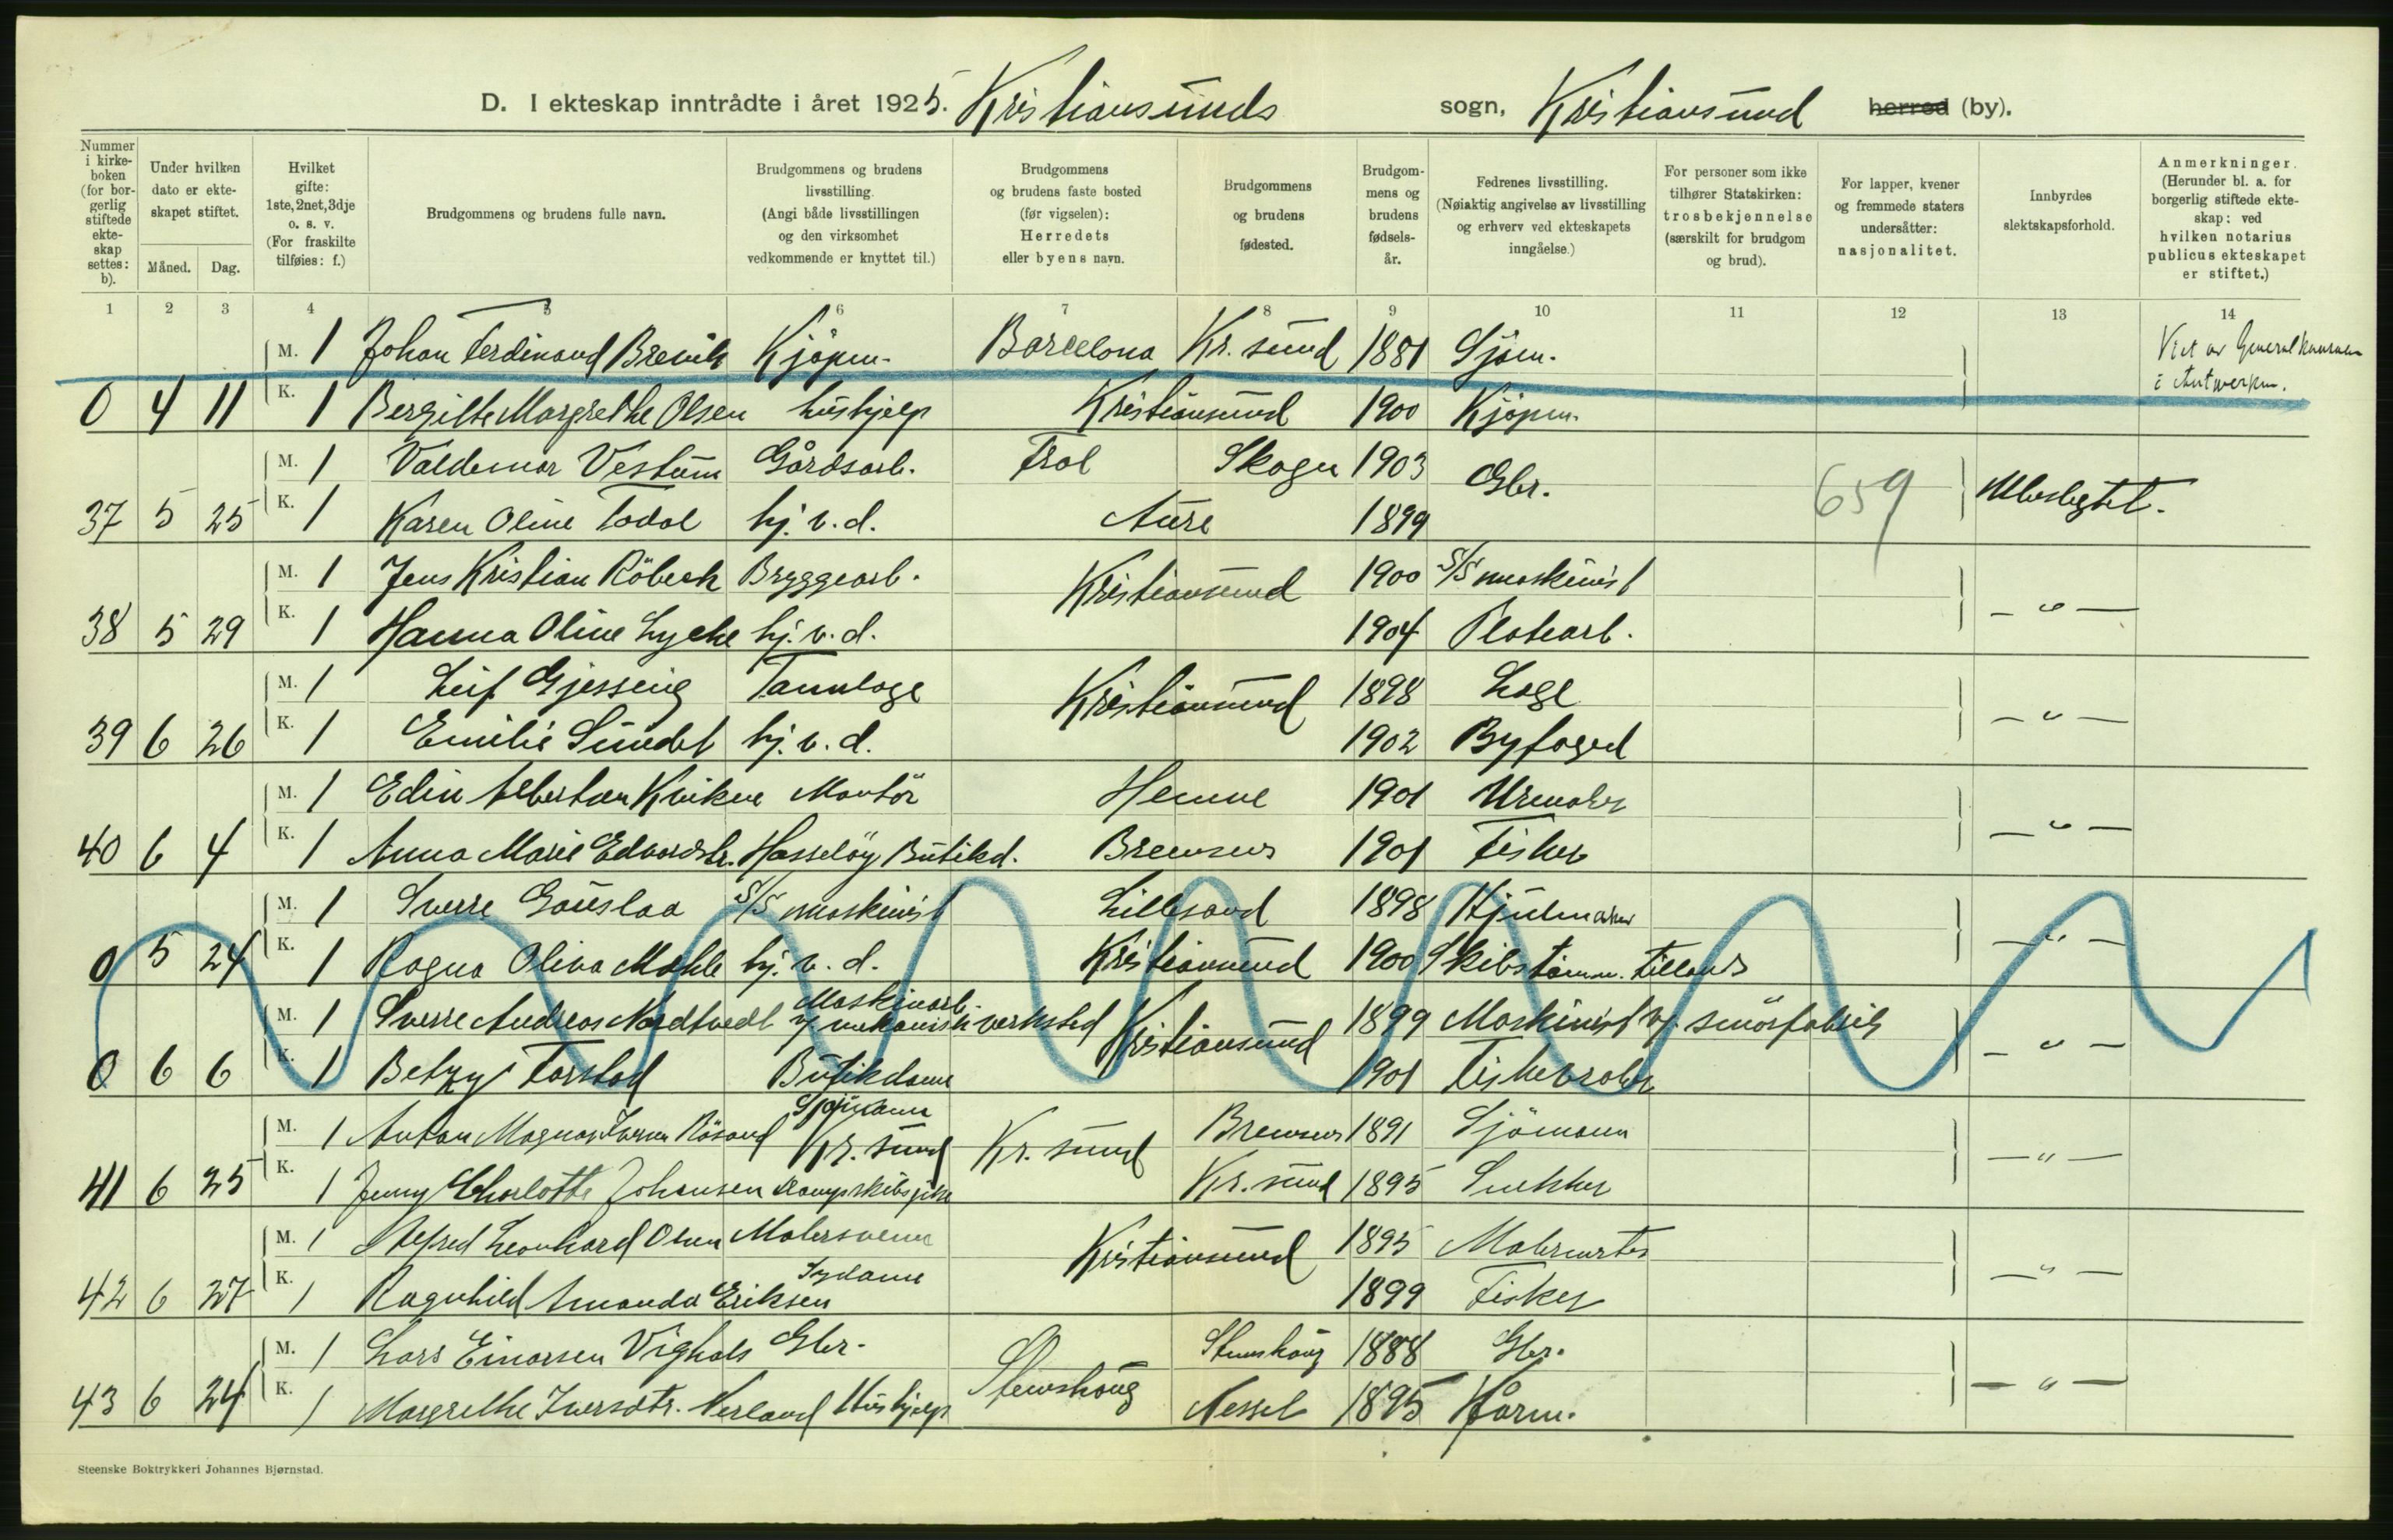 D. I ekteskap inntrådte i året 1925. Kristiansunds sogn, Kristiansund herred (by).
Nummer i kirkeboken (for borgerlig stiftede ekteskap settes: b).
Under hvilken dato er ekteskapet stiftet.
Måned. Dag.
Hvilket gifte: 1ste, 2net, 3dje o. s. v. (For fraskilte tilføies: f.)
Brudgommens og brudens fulle navn.
Brudgommens og brudens livsstilling. (Angi både livsstillingen og den virksomhet vedkommende er knyttet til.)
Brudgommens og brudens faste bosted (før vigselen): Herredets eller byens navn.
Brudgommens og brudens fødested.
Brudgommens og brudens fødselsår.
Fedrenes livsstilling. (Nøiaktig angivelse av livsstilling og erhverv ved ekteskapets inngåelse.)
For personer som ikke tilhører Statskirken: trosbekjennelse (særskilt for brudgom og brud).
For lapper, kvener og fremmede staters undersåtter: nasjonalitet.
Innbyrdes slektskapsforhold.
Anmerkninger. (Herunder bl. a. for borgerlig stiftede ekteskap: ved hvilken notarius publicus ekteskapet er stiftet.)
1 2 3 4 5 6 7 8 9 10 11 12 13 14
M. 1 Johan Ferdinand Brevik Kjøpm. Barcelona Kr.sund 1881 Sjøm. Viet av Generalkonsulen i Antwerpen.
0 4 11 K. 1 Bergitte Margrethe Olsen hushjelp Kristiansund 1900 Kjøpm.
M. 1 Valdemar Vestum Gårdsarb. Frol Skogn 1903 Gbr. 659 Ubeslegtet.
37 5 25 K. 1 Karen Oline Todal hj. v. d. Aure 1899
M. 1 Jens Kristian Röbech Bryggearb. Kristiansund 1900 S/S maskinist
38 5 29 K. 1 Hanna Oline Lyche hj. v. d. 1904 Platearb. — " —
M. 1 Leif Gjessing Tannlæge Kristiansund 1898 Læge
39 6 26 K. 1 Emilie Sundet hj. v. d. 1902 Byfoged — " —
M. 1 Edin Albertsen Kvikne Montör Hemne 1901 Urmaker
40 6 4 K. 1 Anna Marie Edvardstr. Hasselöy Butikd. Bremsnes 1901 Fisker — " —
M. 1 Sverre Gauslaa S/S maskinist Lillesand 1898 Hjulmaker
0 5 24 K. 1 Ragna Oliva Mæhle hj. v. d. Kristiansund 1900 Skibstömm. tillands — " —
M. 1 Sverre Andreas Nordtvedt Maskinarb. v/ mekanisk verksted Kristiansund 1899 Maskinist v/ smörfabrik
0 6 6 K. 1 Betzy Farstad Butikdame 1901 Fiskevraker — " —
M. 1 Anton Magnus Iversen Rösand Sjømann Kr.sund Kr.sund Bremsnes 1891 Sjömann
41 6 25 K. 1 Jenny Charlotte Johansen dampskibspike Kr.sund 1895 Snekker — " —
M. 1 Alfred Leonhard Olsen Malersvenn Kristiansund 1895 Malermester
42 6 27 K. 1 Ragnhild Amanda Eriksen Sydame 1899 Fisker — " —
M. 1 Lars Einarsen Vighals Gbr. Stemshaug Stemshaug 1888 Gbr.
43 6 24 K. 1 Margrethe Iversdtr. Nerland Hushjelp Nesset 1895 Kårm. — " —
Steenske Boktrykkeri Johannes Bjørnstad.